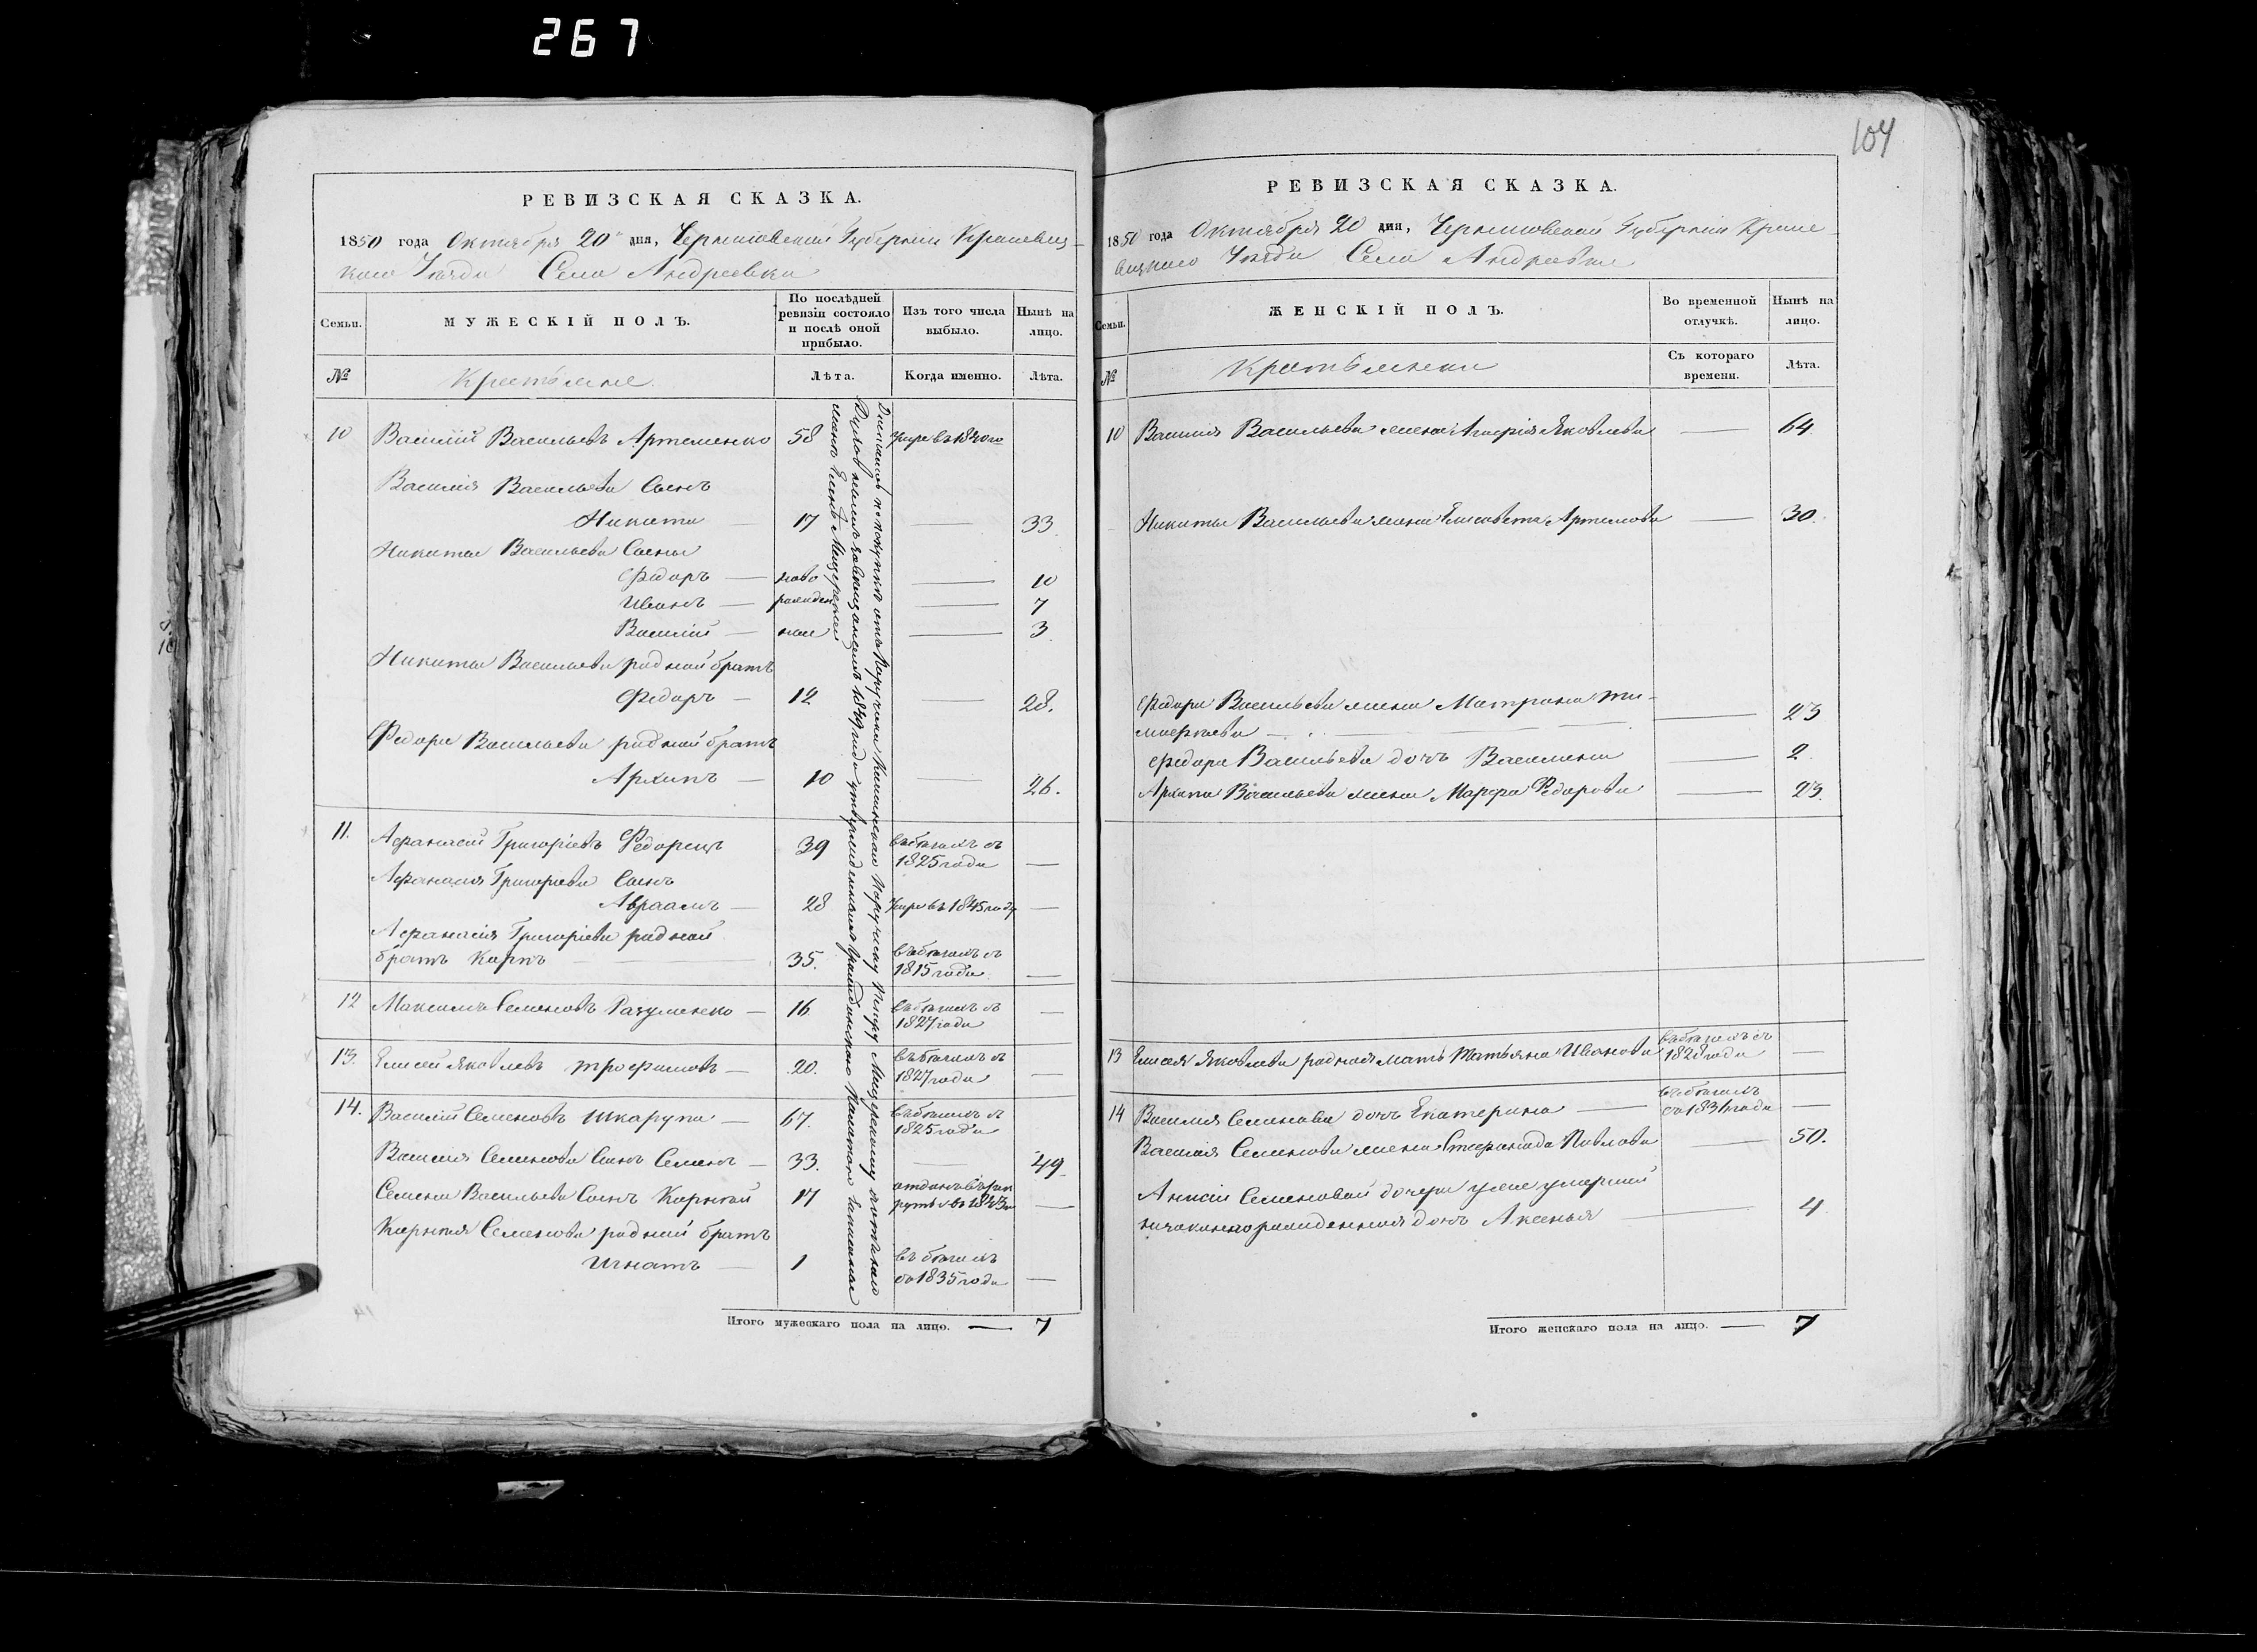 267
104
РЕВИЗСКАЯ СКАЗКА.
1850 года Октября 20 дня, Черниговской Губернiи Кролевец-
каго Уезда Села Андреевки
Семьи. МУЖЕСКIЙ ПОЛЪ. По послѣдней ревизiи состояло и послѣ оной прибыло. Изъ того числа выбыло. Нынѣ на лицо.
№ Крестьяне Лѣта. Когда именно. Лѣта.
10 Василiй Васильевъ Артеменко 58 умре въ 1840
Василiя Васильева Сынъ
Никита 17 — 33
Никиты Васильева Сыны
Федоръ — ново — 10
Иванъ — рожден — 7
Василiй — ные — 3
Никиты Васильева родной братъ
Федоръ — 12 — 28.
Федора Васильева родной братъ
Архипъ — 10 — 26.
11. Афанасiй Григорiевъ Федорецъ 39 въ бегахъ съ
1825 года —
Афанасiя Григорiева Сынъ
Авраамъ — 28 умре въ 1845 году —
Афанасiя Григорiева родной
братъ Карпъ — 35. въ бегахъ съ
1815 года —
12 Максимъ Семеновъ Разуменко — 16. въ бегахъ съ
1827 года —
13. Елисей Яковлевъ Трофимовъ — 20. въ бегахъ съ
1827 года —
14. Василiй Семеновъ Шкарупа — 67. въ бегахъ съ
1825 года
Василiя Семенова Сынъ Семенъ — 33. — 49
Семена Васильева Сынъ Корней 17 отданъ въ рек
руты въ 1843 —
Корнея Семенова родной братъ
Игнатъ — 1 въ бегахъ
съ 1835 года —
Итого мужескаго пола на лицо. — 7
РЕВИЗСКАЯ СКАЗКА.
1850 года Октября 20 дня, Черниговской Губернiи Кроле-
вецкаго Уезда Села Андреевки
Семьи. ЖЕНСКIЙ ПОЛЪ. Во временной отлучкѣ. Нынѣ на лицо.
№ Крестьянки Съ котораго времени. Лѣта.
10 Василiя Васильева жена Яковлева — 64
Никиты Васильева жена Елисавета Артемова — 30.
Федора Васильева жена Матрона Ти-
мофеева — 23
Федора Васильева дочь — 2
Архипа Васильева жена Марфа Федорова — 23.
13 Елисея Яковлева родная мать Татьяна Иванова въ бегахъ съ
1828 года —
14 Василiя Семенова дочь Екатерина — въ бегахъ
съ 1831 года —
Василiя Семенова жена Стефанида Павлова — 50.
Семеновой дочери уже умершей
незаконнорожденная дочь Аксенья — 4
Итого женскаго пола на лицо. — 7